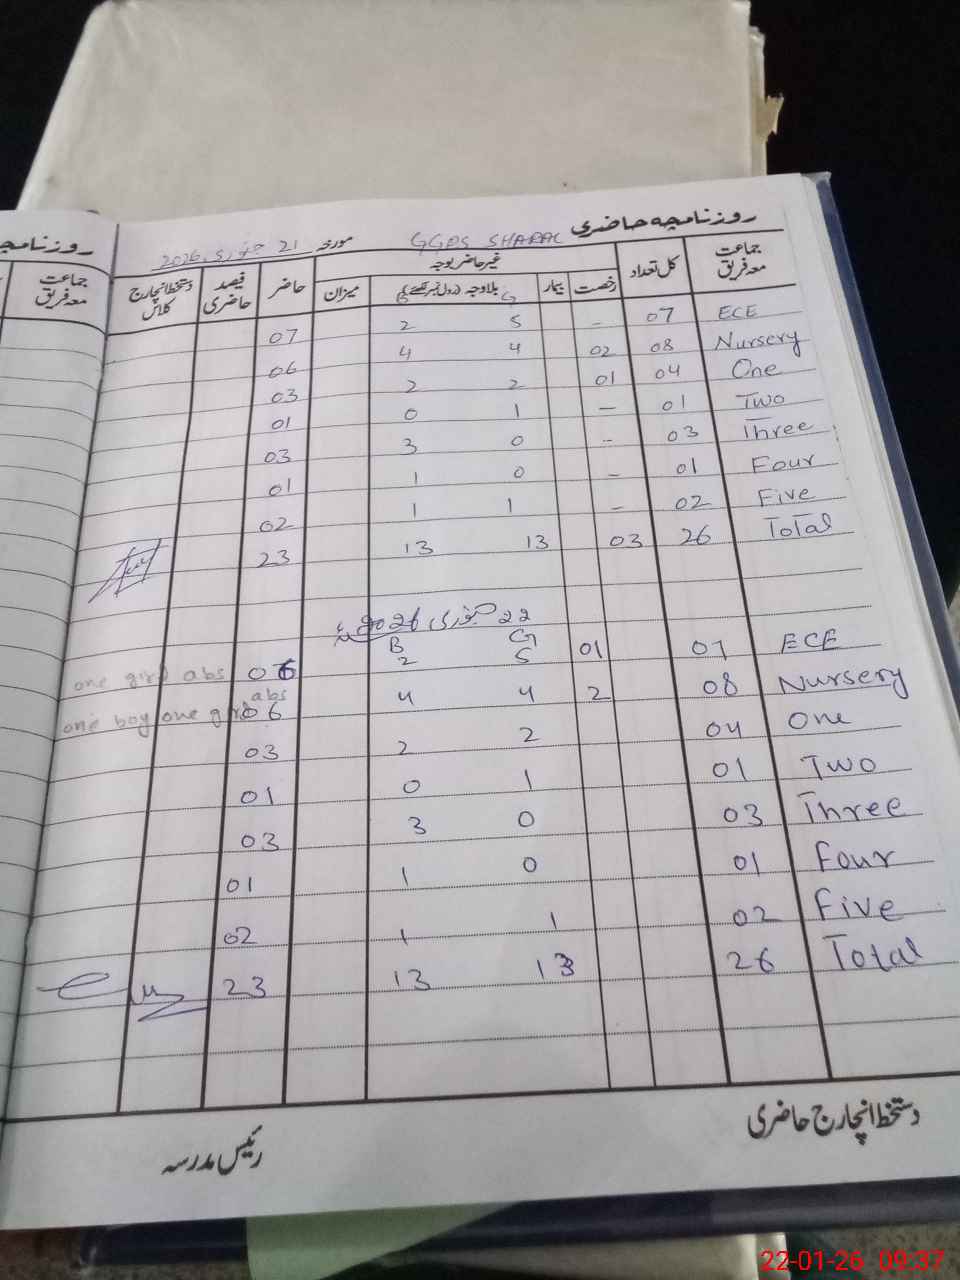 روزنامچہ حاضری
روزنامچہ
GGPS SHARAL مورخہ 21 جنوری 2026
جماعت معہ فریق کل تعداد غیر حاضر بوجہ حاضر فیصد حاضری دستخط انچارج کلاس
رخصت بیمار بلاوجہ (رول نمبر لکھئے) میزان
G B
جماعت معہ فریق
ECE 07 - 5 2 07
Nursery 08 02 4 4 06
One 04 01 2 2 03
Two 01 - 1 0 01
Three 03 - 0 3 03
Four 01 - 0 1 01
Five 02 - 1 1 02
Total 26 03 13 13 23
22 جنوری 2026ء
G B
ECE 07 01 5 2 06 one girl abs
Nursery 08 2 4 4 06 one boy one girl abs
One 04 2 2 03
Two 01 1 0 01
Three 03 0 3 03
Four 01 0 1 01
Five 02 1 1 02
Total 26 13 13 23
دستخط انچارج حاضری
رئیس مدرسہ
22-01-26 09:37